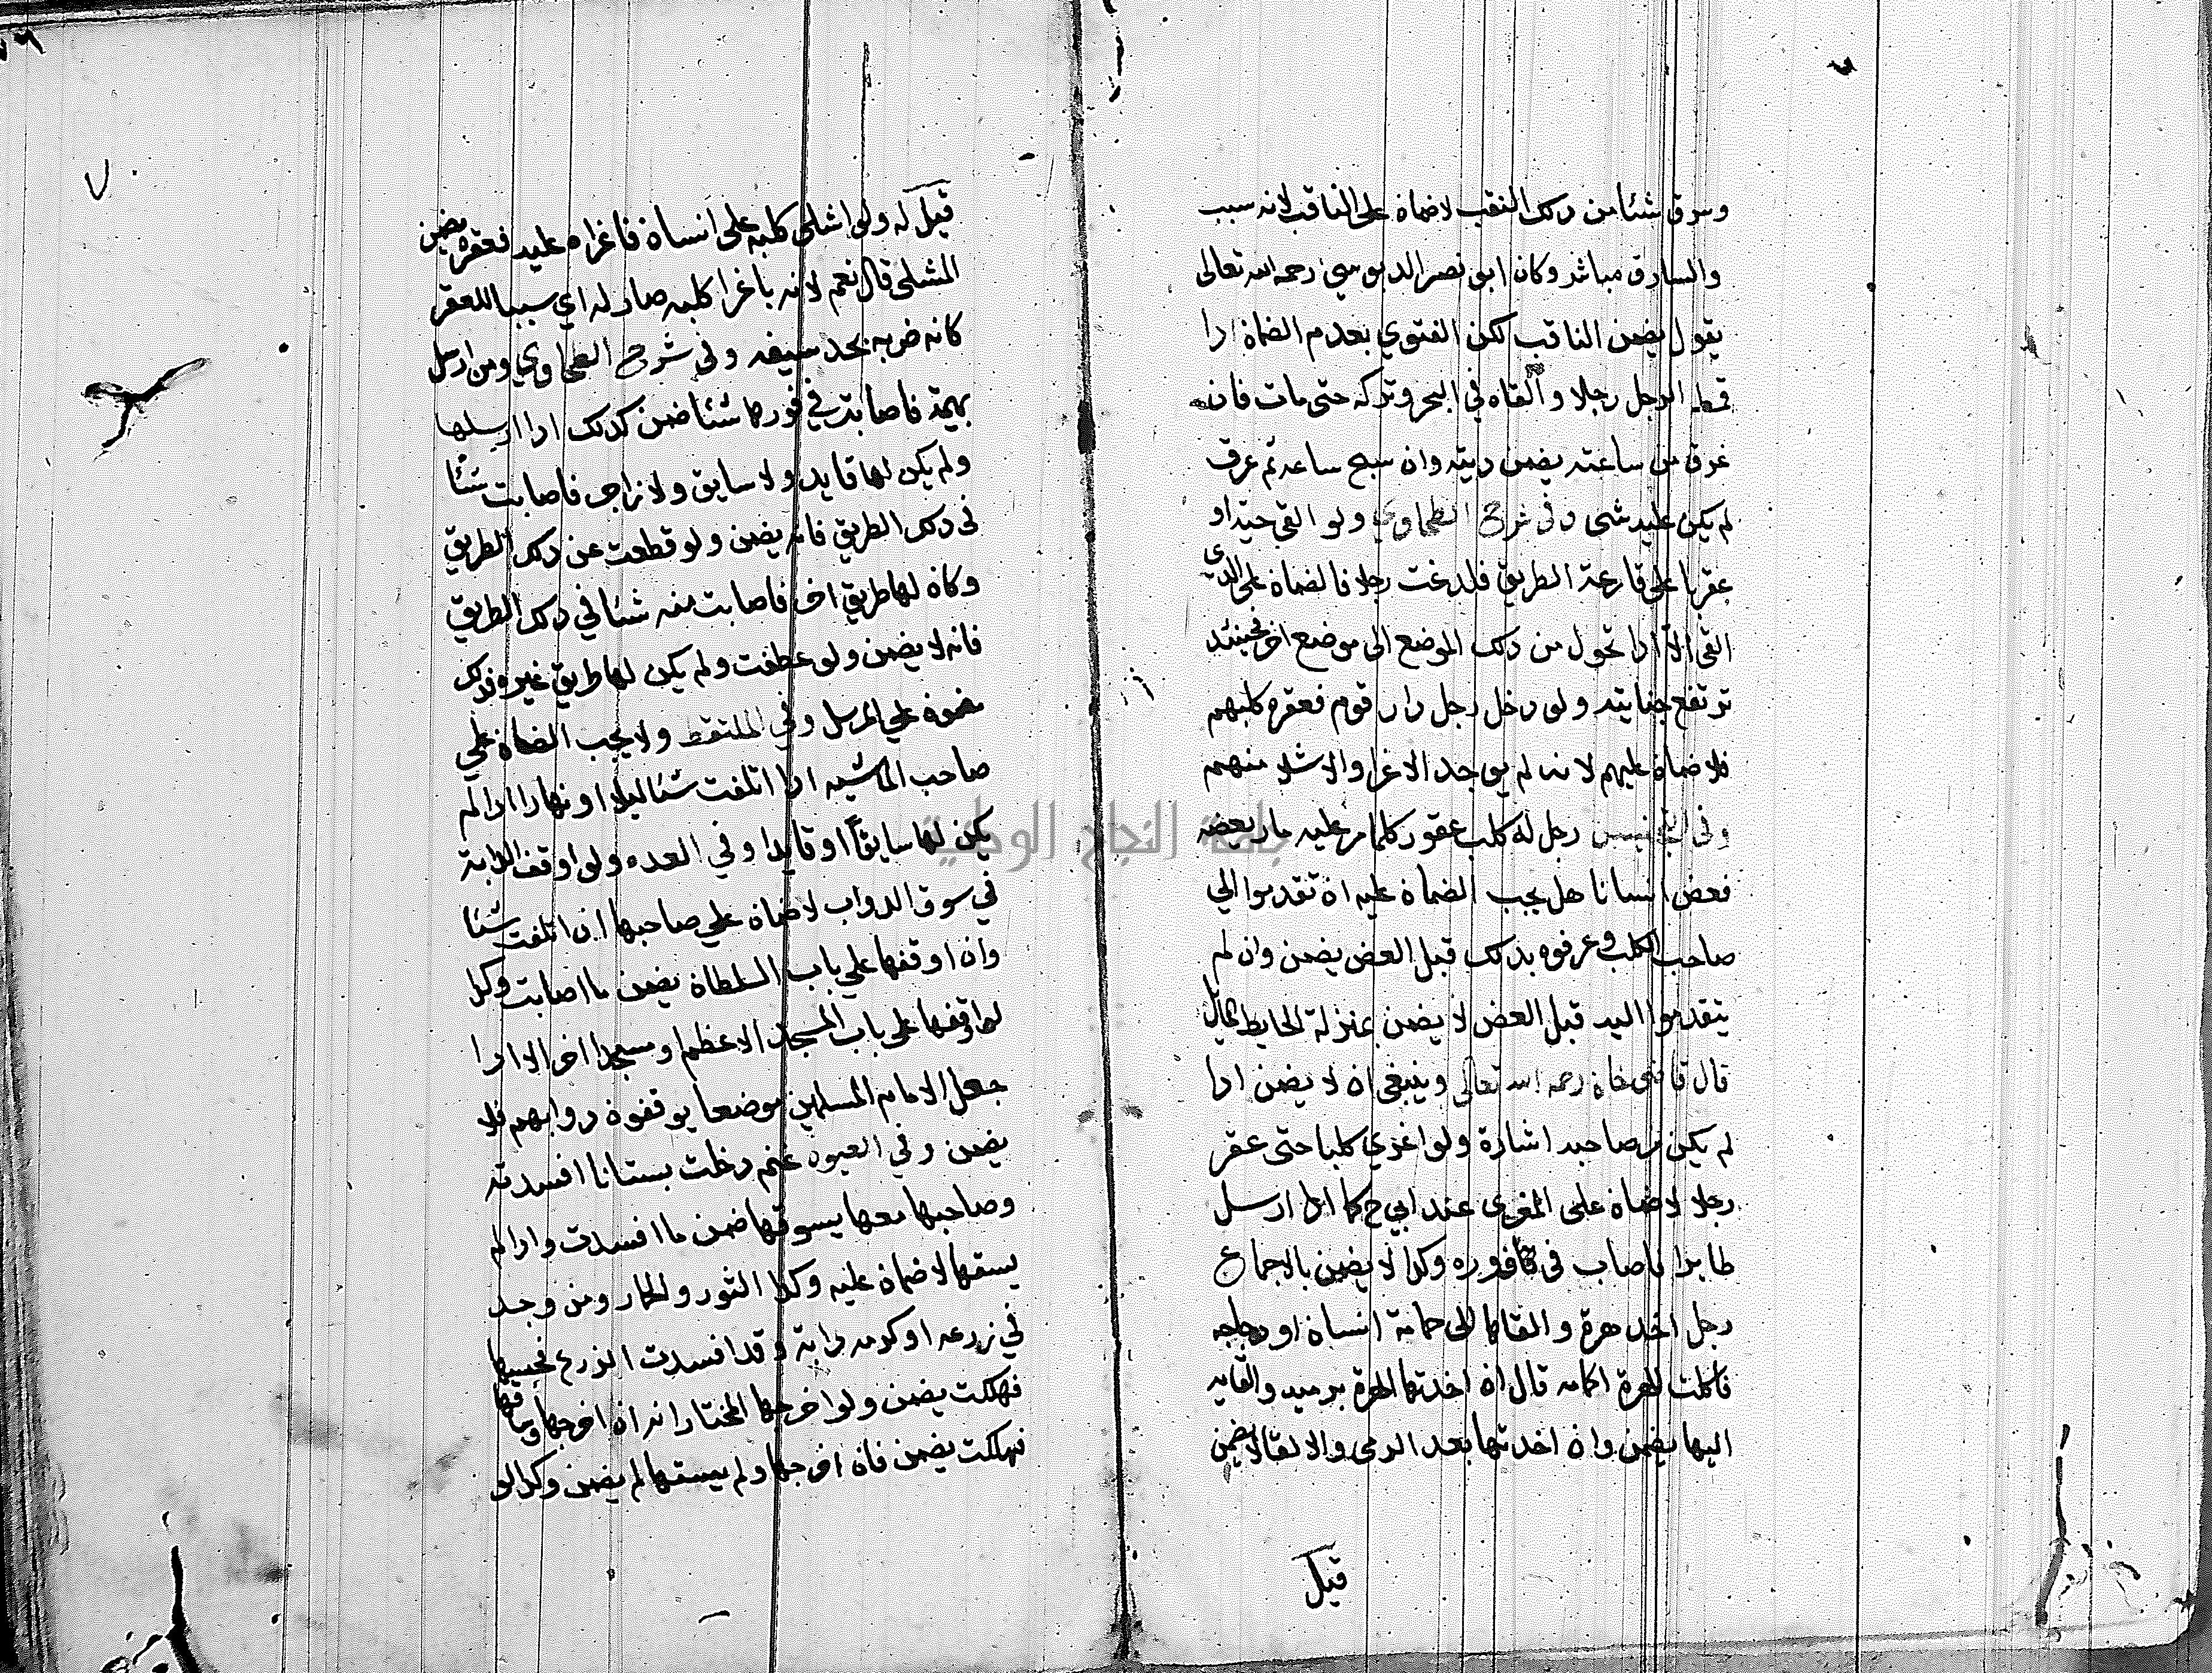 وسرق شئا من دلك النقب لا ضمان على الناقب لانه سبب
والسارق مباشر وكان ابو نصر الدبوسي رحمه الله تعالى
يقول يضمن الناقب لكن الفتوي بعدم الضمان ادا
قمط الرجل رجلا والقاه في البحر وتركه حتى مات فان
غرق من ساعته يضمن ديته وان سبح ساعه ثم غرق
لم يكن عليه شى وفى شرح الطحاوي ولو القي حية او
عقربا على قارعة الطريق فلدغت رجلا فالضمان على الدي
القى الا ادا تحول من دلك الموضع الى موضع اخر فحينئد
ترتفع جنايته ولو دخل رجل دار قوم فعقره كلبهم
فلا ضمان عليهم لانه لم يوجد الاغرا والاشلا منهم
وفى التجنيس رجل له كلب عقور كلما مر عليه مار يعضه
فعض انسانا هل يجب الضمان عليه ان تقدموا الي
صاحب الكلب وعرفوه بدلك قبل العض يضمن وان لم
يتقدموا اليه قبل العض لا يضمن بمنزلة الحايط المايل
قال قاضى خان رحمه الله تعالى وينبغى ان لا يضمن ادا
لم يكن من صاحبه اشارة ولو اغري كلبا حتى عقر
رجلا لا ضمان على المغرى عند ابي ح كما ادا ارسل
طايرا فاصاب فى فوره وكدا لا يضمن بالاجماع
رجل اخد هرة والقاها الى حمامة انسان او دجاجه
فاكلت الهرة الحمامه قال ان اخدتها الهرة برميه والقايه
اليها يضمن وان اخدتها بعد الرمى والالقا لا يضمن
قيل
٧
قيل له ولو اشلى كلبه على انسان فاغراه عليه فعقره يضمن
المشلى قال نعم لانه باغرا كلبه صار له اي سببا للعقر
كانه ضربه بحد سيفه وفى شرح الطحاوي ومن ارسل
بهيمة فاصابت في فورها شئا ضمن كدلك ادا ارسلها
ولم يكن لها قايد ولا سايق ولا زاجر فاصابت شئا
فى دلك الطريق فانه يضمن ولو قطعت عن دلك الطريق
وكان لها طريق اخر فاصابت منه شئا في دلك الطريق
فانه لا يضمن ولو عطفت ولم يكن لها طريق غيره فدلك
مضمون علي المرسل وفي الملتقط ولا يجب الضمان علي
صاحب الماشيه ادا اتلفت شئا ليلا او نهارا ادا لم
يكن لها سايقاً او قايدا وفي العده ولو اوقف الدابة
في سوق الدواب لا ضمان علي صاحبها ان اتلفت شئا
وان اوقفها علي باب السلطان يضمن ما اصابت وكدا
لو اوقفها على باب المسجد الاعظم او مسجدا اخر الا ادا
جعل الامام المسلمين موضعا يوقفون دوابهم فلا
يضمن وفي العيون غنم دخلت بستانا افسدته
وصاحبها معها يسوقها ضمن ما افسدت وادا لم
يسقها لا ضمان عليه وكدا الثور والحمار ومن وجد
في زرعه او كرمه دابة وقد افسدت الزرع فحبسها
فهلكت يضمن ولو اخرجها المختار انه ان اخرجها وساقها
فهلكت يضمن فان اخرجها ولم يسقها لم يضمن وكدا لو
جامعة النجاح الوطنية